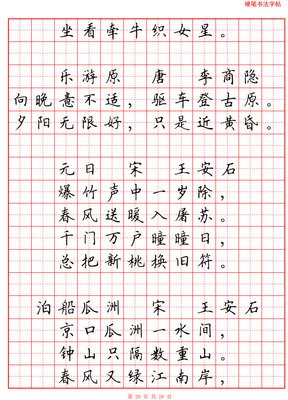 硬笔书法字帖
坐看牵牛织女星。
乐游原 唐 李商隐
向晚意不适，驱车登古原。
夕阳无限好，只是近黄昏。
元日 宋 王安石
爆竹声中一岁除，
春风送暖入屠苏。
千门万户曈曈日，
总把新桃换旧符。
泊船瓜洲 宋 王安石
京口瓜洲一水间，
钟山只隔数重山。
春风又绿江南岸，
第 26 页 共 28 页